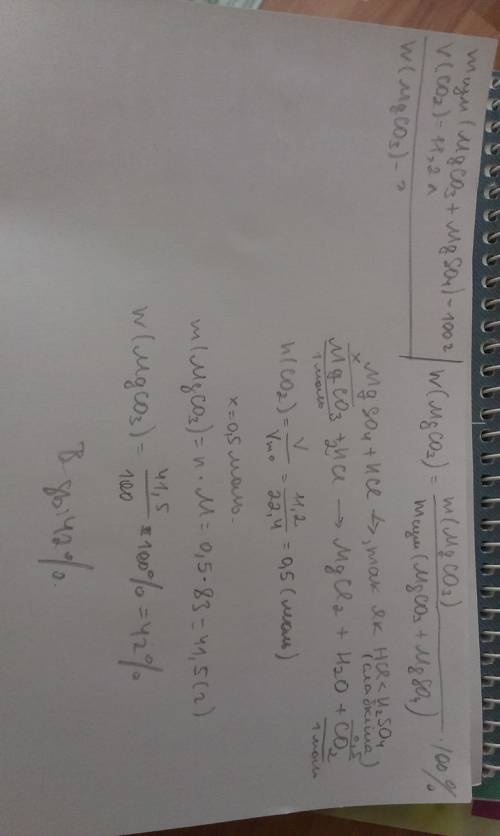 m сум (MgCO3 + MgSO4) - 100 г
V(CO2) - 11,2 л
W(MgCO3) - ?
W(MgCO3) = m(MgCO3) / m сум (MgCO3 + MgSO4) · 100%
MgSO4 + HCl ↛, так як HCl < H2SO4
(слабкіша)
x 0,5
MgCO3 + 2HCl → MgCl2 + H2O + CO2
1 моль 1 моль
n(CO2) = V / Vm = 11,2 / 22,4 = 0,5 (моль)
x = 0,5 моль.
m(MgCO3) = n · M = 0,5 · 83 = 41,5 (г)
W(MgCO3) = 41,5 / 100 * 100% = 42%
В-дь: 42%.